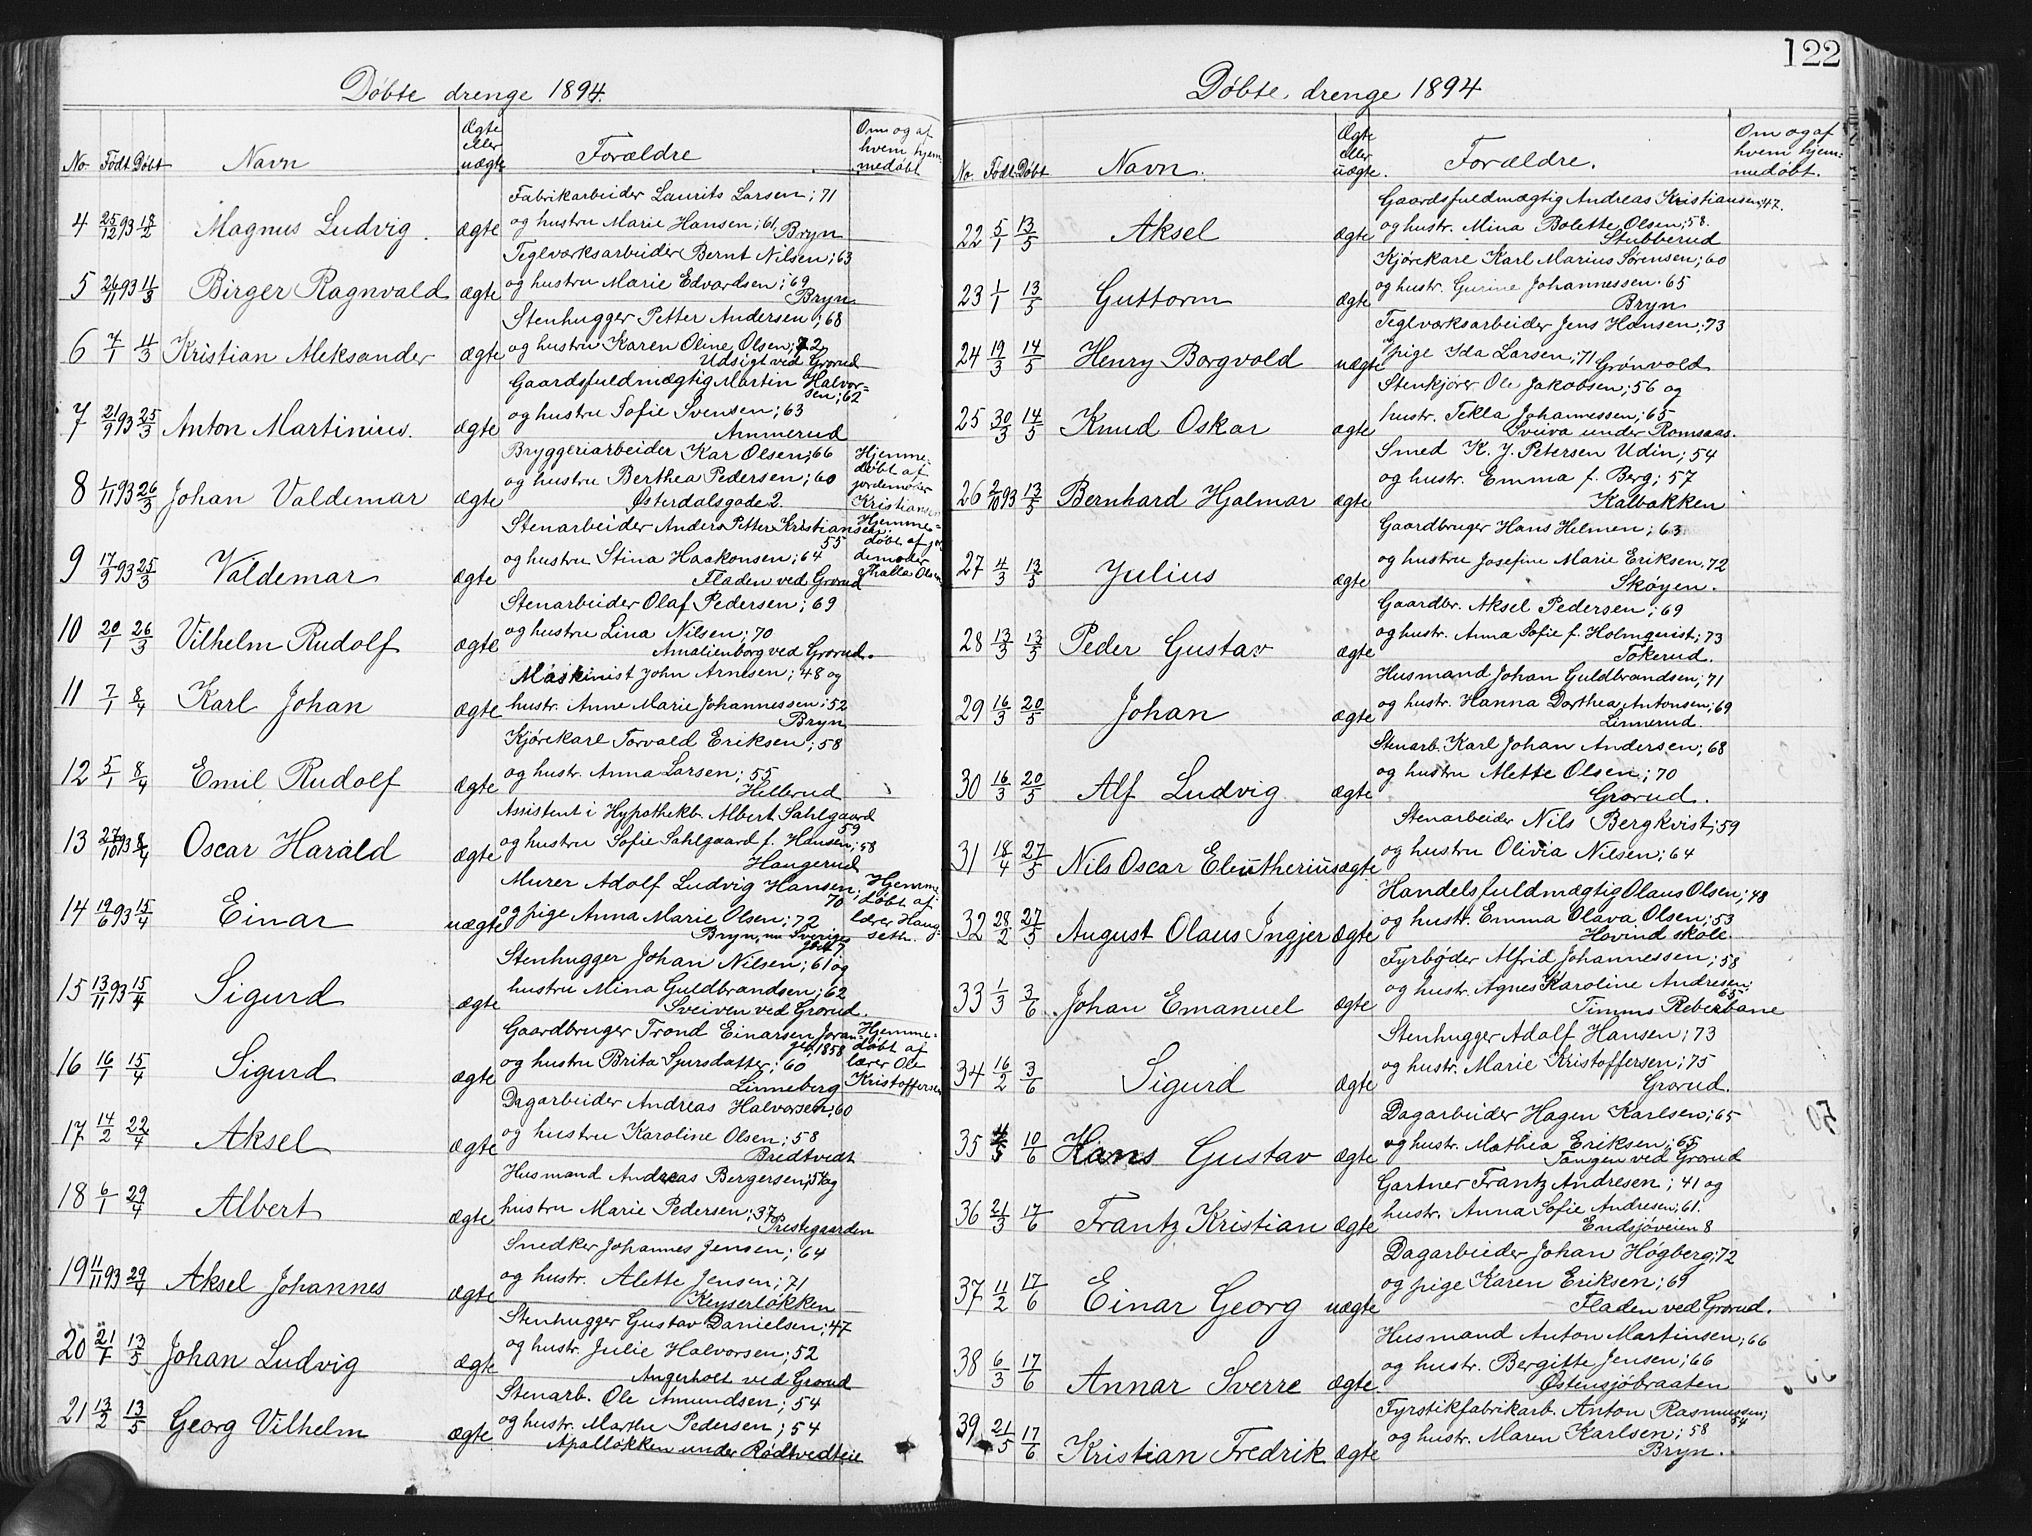 Døbte drenge 1894.
No. Født Døbt Navn Ægte eller uægte Forældre Om og af hvem hjemmedøbt
4 25/12 93 18/2 Magnus Ludvig. ægte Fabrikarbeider Laurits Larsen; 71
og hustru Marie Hansen; 61, Bryn
5 26/11 93 11/3 Birger Ragnvald ægte Teglværksarbeider Bernt Nilsen; 63
og hustru Marie Edvardsen; 69
Bryn
6 7/1 11/3 Kristian Aleksander ægte Stenhugger Petter Andersen; 68
og hustru Karen Oline Olsen; 72
Udsigt ved Grorud
7 21/9 93 25/3 Anton Martinius. ægte Gaardsfuldmægtig Martin Halvor=
sen; 62
og hustru Sofie Svensen; 63
Ammerud
8 1/11 93 26/3 Johan Valdemar ægte Bryggeriarbeider Kar Olsen; 66
og hustru Berthea Pedersen; 60
Østerdalsgade 2.
Hjemme-
døbt af
jordemoder
Kristiansen
9 17/9 93 25/3 Valdemar ægte Stenarbeider Anders Petter Kristiansen;
55
og hustru Stina Haakonsen; 64
Fladen ved Grorud
Hjemme=
døbt af jor
demoder
Thalla Olsen
10 20/1 26/3 Vilhelm Rudolf ægte Stenarbeider Olaf Pedersen; 69
og hustru Lina Nilsen; 70
Amalienborg ved Grorud.
11 7/1 8/4 Karl Johan ægte Maskinist John Arnesen; 48 og
hustr. Anne Marie Johannessen; 52
Bryn
12 5/1 8/4 Emil Rudolf ægte Kjørekarl Torvald Eriksen; 58
og hustr. Anna Larsen; 55
Hellerud
13 27/10 93 8/4 Oscar Harald ægte Assistent i Hypothekb. Albert Sahlgaard
59
og hustru Sofie Sahlgaard f. Hansen; 58
Haugerud
14 19/6 93 15/4 Einar uægte Murer Adolf Ludvig Hansen;
70
og pige Anna Marie Olsen; 72
Bryn, nu Sveriges
Hjemme
døbt af
lærer Haug-
seth.
15 13/11 93 15/4 Sigurd ægte Stenhugger Johan Nilsen; 61 og
hustru Mina Guldbrandsen; 62
Sveiven ved Grorud.
16 16/1 15/4 Sigurd ægte Gaardbruger Trond Einarsen
1858
og hustru Brita Sjursdatter; 60
Linneberg
Hjemme-
døbt af
lærer Ole
Kristoffersen
17 14/2 22/4 Aksel ægte Dagarbeider Andreas Halvorsen; 60
og hustru Karoline Olsen; 58
Bredtvedt
18 6/1 29/4 Albert ægte Husmand Andreas Bergersen; 54 og
hustru Marie Pedersen; 37
Prestegaarden
19 11/11 93 29/4 Aksel Johannes ægte Snedker Johannes Jensen; 64
og hustr. Alette Jensen; 71
Keyserløkken
20 21/1 13/5 Johan Ludvig ægte Stenhugger Gustav Danielsen; 47
og hustr. Julie Halvorsen; 52
Angerholt ved Grorud
21 13/2 13/5 Georg Vilhelm ægte Stenarb. Ole Amundsen; 54
og hustr. Marthe Pedersen; 54
Apalløkken under Rødtvedteie
122
Døbte drenge 1894
No. Født Døbt Navn. Ægte eller uægte. Forældre. Om og af hvem hjem=medøbt.
22 5/1 13/5 Aksel ægte Gaardsfuldmægtig Andreas Kristiansen; 47.
og hustr. Mina Bolette Olsen; 58.
Stubberud
23 1/1 13/5 Guttorm ægte Kjørekarl Karl Marius Sørensen; 60
og hustr. Gurine Johannessen. 65
Bryn
24 19/3 14/5 Henry Borgvold uægte Teglværksarbeider Jens Hansen; 73
pige Ida Larsen; 71 Grønvold
25 30/3 14/5 Knud Oskar ægte Stenkjører Ole Jakobsen; 56 og
hustr. Tekla Johannessen; 65
Sveiva under Romsaas.
26 2/10 93 13/5 Bernhard Hjalmar ægte Smed K. J. Petersen Udin; 54
og hustr. Emma f. Berg; 57
Kalbakken
27 4/3 13/5 Julius ægte Gaardbruger Hans Helmen; 63
og hustru Josefine Marie Eriksen, 72
Skøyen.
28 13/3 13/5 Peder Gustav ægte Gaardbr. Aksel Pedersen; 69
og hustr. Anna Sofie f. Holmqvist; 73
Tokerud.
29 16/3 20/5 Johan ægte Husmand Johan Guldbrandsen; 71
og hustr. Hanna Dorthea Antonsen; 69
Linnerud.
30 16/3 20/5 Alf Ludvig ægte Stenarb. Karl Johan Andersen; 68
og hustru Alette Olsen; 70
Grorud.
31 18/4 27/5 Nils Oscar Eleutherius ægte Stenarbeider Nils Bergkvist; 59
og hustru Olivia Nilsen; 64
32 28/2 27/5 August Olaus Ingjer ægte Handelsfuldmægtig Olaus Olsen; 48
og hustr. Emma Olava Olsen; 53
Hovind skole.
33 1/3 3/6 Johan Emanuel ægte Fyrbøder Alfrid Johannessen; 58
og hustr. Agnes Karoline Andresen;
65
Timms Reberbane
34 16/2 3/6 Sigurd ægte Stenhugger Adolf Hansen; 73
og hustr. Marie Kristoffersen; 75
Grorud.
35 10/6 Hans Gustav ægte Dagarbeider Hagen Karlsen; 65
og hustr. Mathea Eriksen; 65
Tangen ved Grorud
36 21/3 17/6 Frantz Kristian ægte Gartner Frantz Andresen; 41 og
hustr. Anna Sofie Andresen; 61.
Endsjøveien 8
37 11/2 17/6 Einar Georg uægte Dagarbeider Johan Høgberg; 72
og pige Karen Eriksen; 69
Fladen ved Grorud.
38 6/3 17/6 Annar Sverre ægte Husmand Anton Martinsen; 66
og hustr. Bergitte Jensen; 66
Østensjøbraaten
39 21/5 17/6 Kristian Fredrik ægte Fyrstikfabrikarb. Anton Rasmussen;
54
og hustr. Maren Karlsen; 58
Bryn.